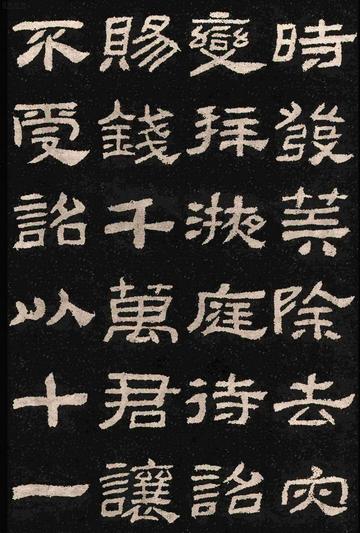 時發筭除去灾
變拜掖庭待詔
賜錢千萬君讓
不受詔以十一